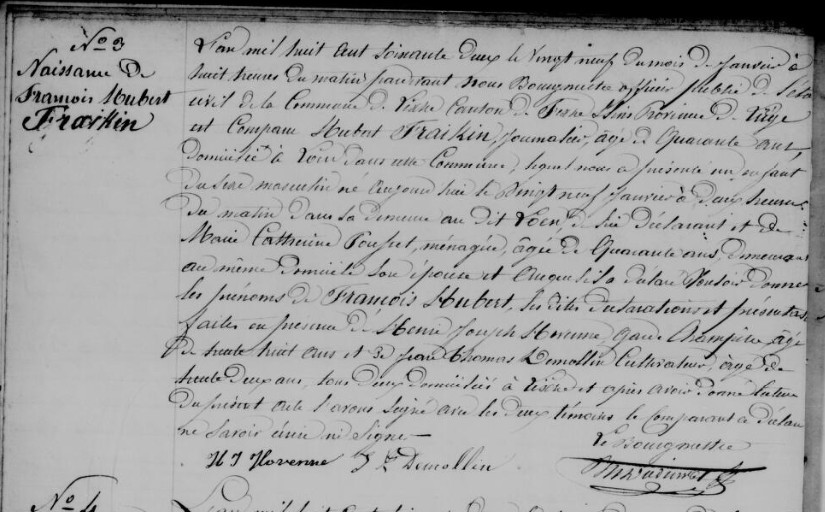 No 3
Naissance de
François Hubert
Fraikin
L'an mil huit cent soixante deux le vingt neuf du mois de Janvier à
huit heures du matin pardevant nous Bourgmestre officier public de l'état
civil de la Commune de Province de Liége
est Comparu Hubert Fraikin, Journalier, âgé de Quarante ans,
Domicilié à dans cette Commune, lequel nous a présenté un enfant
du sexe masculin né aujourd'hui le Vingt neuf Janvier à deux heures
du matin dans sa demeure au dit de lui déclarant et de
Marie Catherine ménagère, âgée de Quarante ans, demeurant
au même domicile son épouse et auquel il a déclaré Vouloir donner
les prénoms de François Hubert, les dites déclaration et présentation
faites en présence de Henri Joseph Hovenne, Garde Champêtre, âgé
de trente huit ans et de Jean Thomas Demollin Cultivateur, âgé de
trente deux ans, tous deux domiciliés à et après avoir donné lecture
du présent acte l'avons signé avec les deux témoins le Comparant a déclaré
ne savoir écrire ni signer
Le Bourgmestre
H J Hovenne J T Demollin
No 4